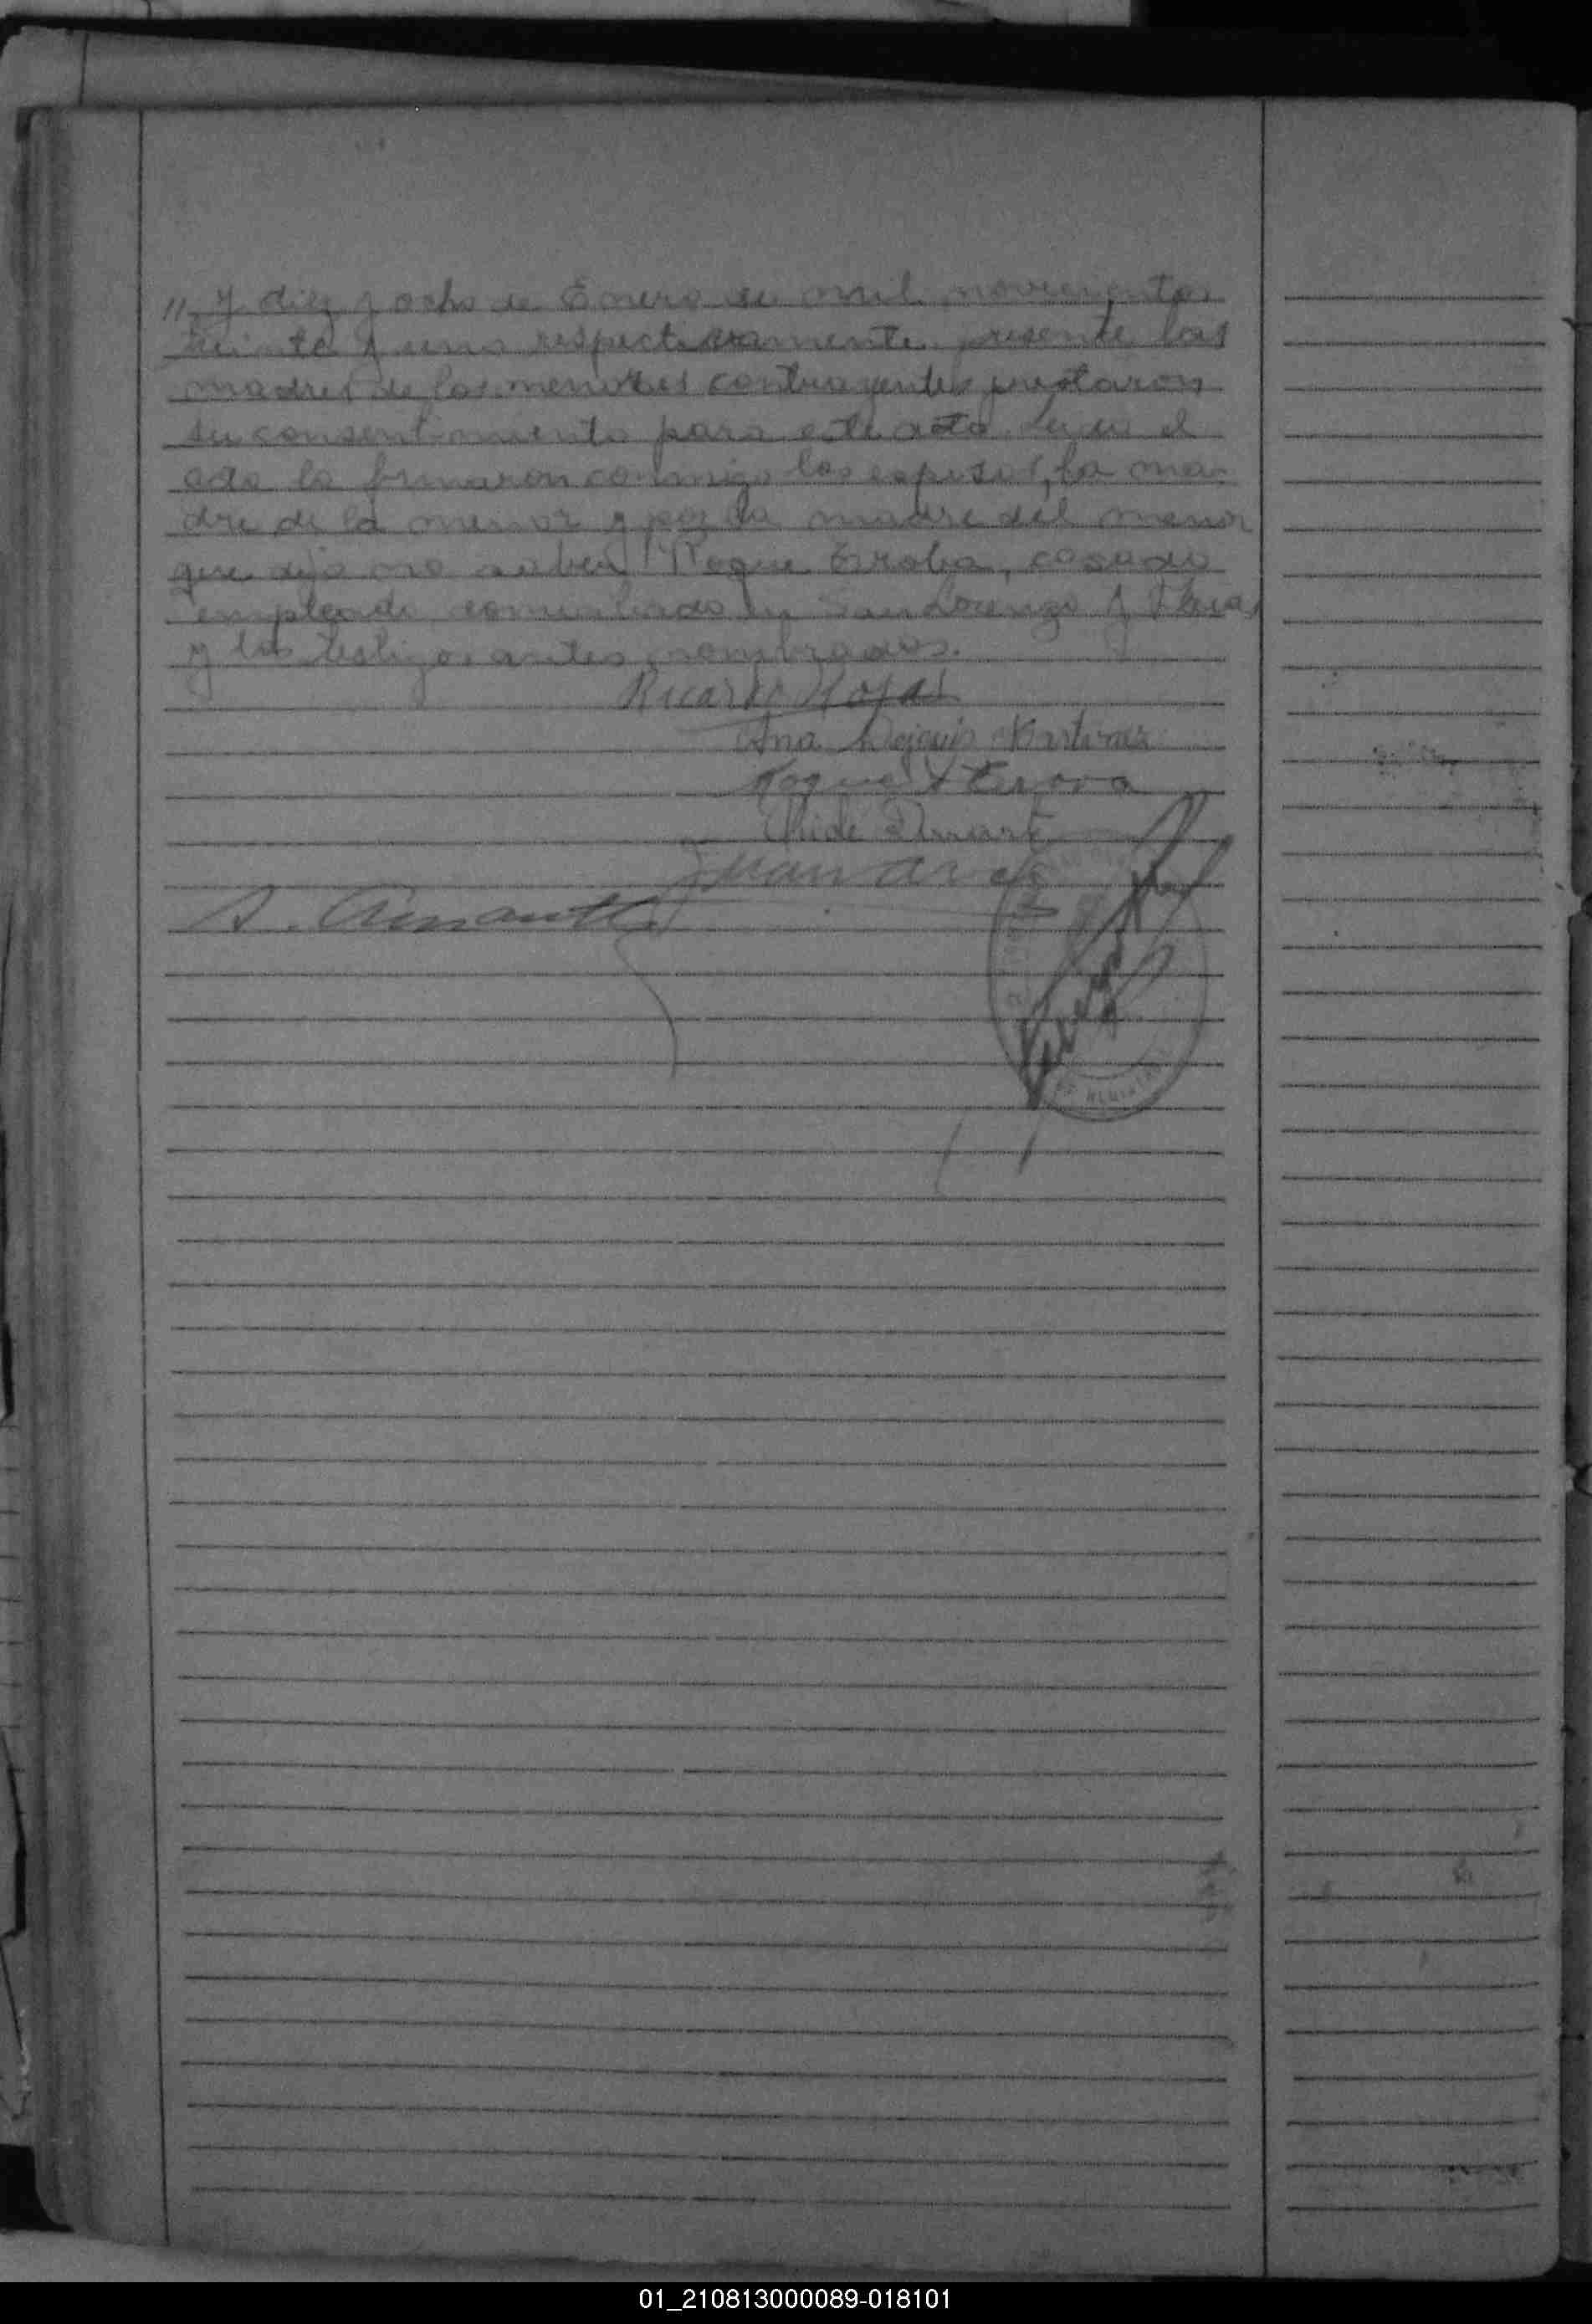 // y diez y ocho de Enero de mil novecientos
treinta y uno respectivamente, presente las
madres de los menores contrayentes prestaron
su consentimiento para este acto. Leida el
acta la firmaron conmigo los esposos, la ma-
dre de la menor y por la madre del menor
que dijo no saber Roque Erroba, casado
empleado domiciliado en San Lorenzo y
y los testigos antes nombrados.
Ricardo Rojas
Ana Martinez
Roque
Duarte
Juan
01_210813000089-018101